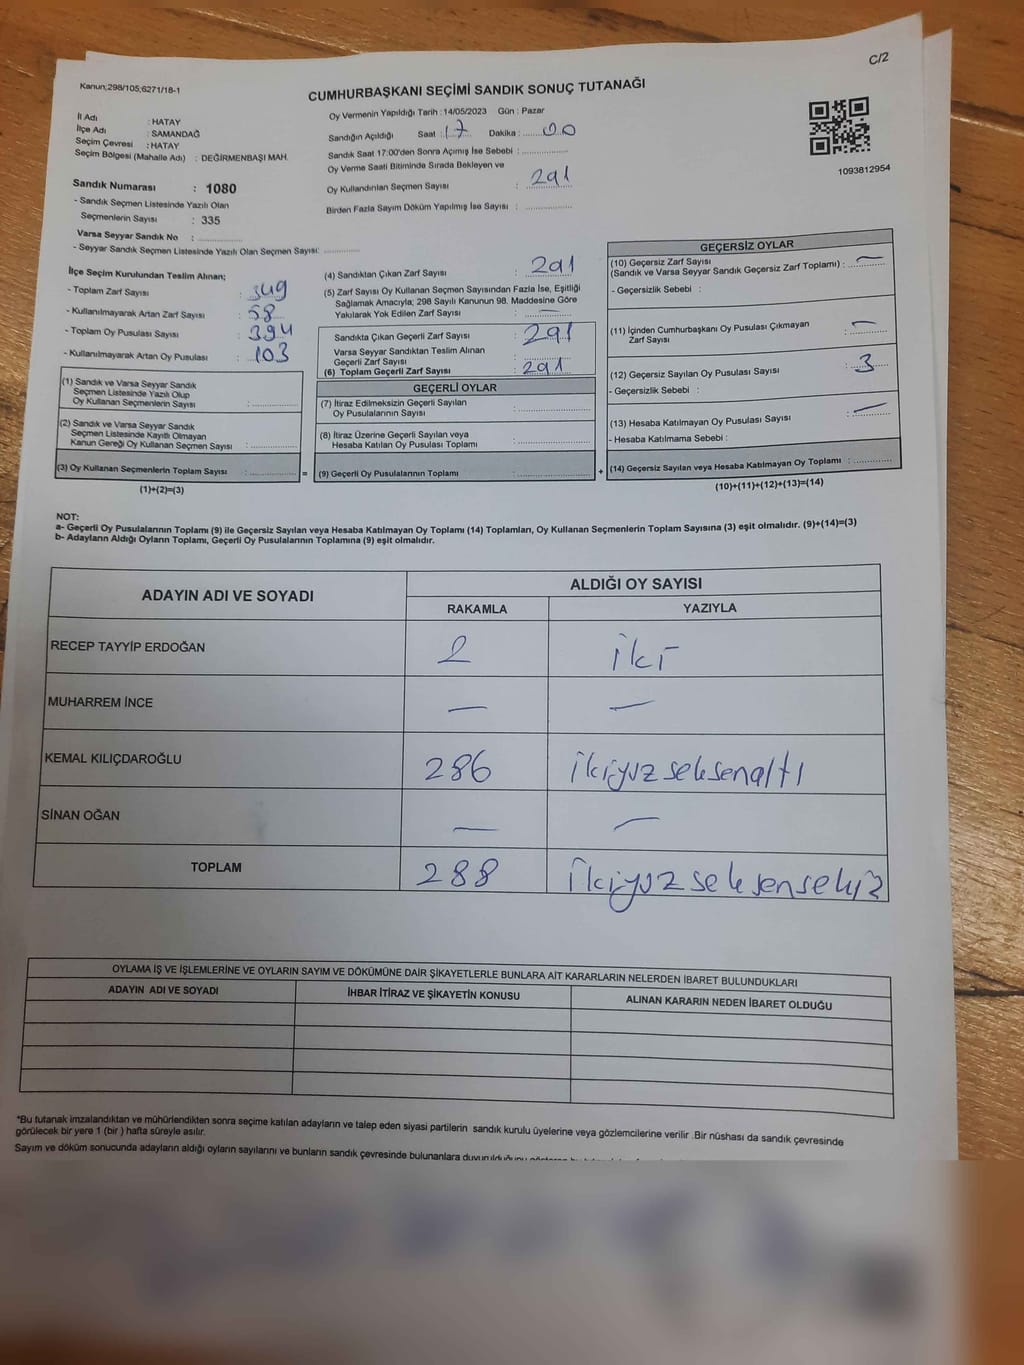 C/2
Kanun;298/105;6271/18-1
CUMHURBAŞKANI SEÇİMİ SANDIK SONUÇ TUTANAĞI
İl Adı : HATAY
İlçe Adı : SAMANDAĞ
Seçim Çevresi : HATAY
Seçim Bölgesi (Mahalle Adı) : DEĞİRMENBAŞI MAH.
Sandık Numarası : 1080
- Sandık Seçmen Listesinde Yazılı Olan
Seçmenlerin Sayısı : 335
Varsa Seyyar Sandık No : ............
- Seyyar Sandık Seçmen Listesinde Yazılı Olan Seçmen Sayısı: ............
Oy Vermenin Yapıldığı Tarih : 14/05/2023 Gün : Pazar
Sandığın Açıldığı Saat : 17 Dakika : 00
Sandık Saat 17:00'den Sonra Açımış İse Sebebi : ............
Oy Verme Saati Bitiminde Sırada Bekleyen ve
Oy Kullandırılan Seçmen Sayısı : 291
Birden Fazla Sayım Döküm Yapılmış İse Sayısı : ............
1093812954
İlçe Seçim Kurulundan Teslim Alınan;
- Toplam Zarf Sayısı : 349
- Kullanılmayarak Artan Zarf Sayısı : 58
- Toplam Oy Pusulası Sayısı : 394
- Kullanılmayarak Artan Oy Pusulası : 103
(1) Sandık ve Varsa Seyyar Sandık
Seçmen Listesinde Yazılı Olup
Oy Kullanan Seçmenlerin Sayısı : ............
(2) Sandık ve Varsa Seyyar Sandık
Seçmen Listesinde Kayıtlı Olmayan
Kanun Gereği Oy Kullanan Seçmen Sayısı : ............
(3) Oy Kullanan Seçmenlerin Toplam Sayısı : ............ =
(1)+(2)=(3)
(4) Sandıktan Çıkan Zarf Sayısı : 291
(5) Zarf Sayısı Oy Kullanan Seçmen Sayısından Fazla İse, Eşitliği
Sağlamak Amacıyla; 298 Sayılı Kanunun 98. Maddesine Göre
Yakılarak Yok Edilen Zarf Sayısı : —
Sandıkta Çıkan Geçerli Zarf Sayısı : 291
Varsa Seyyar Sandıktan Teslim Alınan
Geçerli Zarf Sayısı : ............
(6) Toplam Geçerli Zarf Sayısı : 291
GEÇERLİ OYLAR
(7) İtiraz Edilmeksizin Geçerli Sayılan
Oy Pusulalarının Sayısı : ............
(8) İtiraz Üzerine Geçerli Sayılan veya
Hesaba Katılan Oy Pusulası Toplamı : ............
(9) Geçerli Oy Pusulalarının Toplamı : ............ +
GEÇERSİZ OYLAR
(10) Geçersiz Zarf Sayısı
(Sandık ve Varsa Seyyar Sandık Geçersiz Zarf Toplamı) : —
- Geçersizlik Sebebi :
(11) İçinden Cumhurbaşkanı Oy Pusulası Çıkmayan
Zarf Sayısı : —
(12) Geçersiz Sayılan Oy Pusulası Sayısı : 3
- Geçersizlik Sebebi :
(13) Hesaba Katılmayan Oy Pusulası Sayısı : —
- Hesaba Katılmama Sebebi :
(14) Geçersiz Sayılan veya Hesaba Katılmayan Oy Toplamı : ............
(10)+(11)+(12)+(13)=(14)
NOT:
a- Geçerli Oy Pusulalarının Toplamı (9) ile Geçersiz Sayılan veya Hesaba Katılmayan Oy Toplamı (14) Toplamları, Oy Kullanan Seçmenlerin Toplam Sayısına (3) eşit olmalıdır. (9)+(14)=(3)
b- Adayların Aldığı Oyların Toplamı, Geçerli Oy Pusulalarının Toplamına (9) eşit olmalıdır.
ADAYIN ADI VE SOYADI ALDIĞI OY SAYISI
RAKAMLA YAZIYLA
RECEP TAYYİP ERDOĞAN 2 iki
MUHARREM İNCE — —
KEMAL KILIÇDAROĞLU 286 ikiyuz seksenaltı
SİNAN OĞAN — —
TOPLAM 288 ikiyuz seksensekiz
OYLAMA İŞ VE İŞLEMLERİNE VE OYLARIN SAYIM VE DÖKÜMÜNE DAİR ŞİKAYETLERLE BUNLARA AİT KARARLARIN NELERDEN İBARET BULUNDUKLARI
ADAYIN ADI VE SOYADI İHBAR İTİRAZ VE ŞİKAYETİN KONUSU ALINAN KARARIN NEDEN İBARET OLDUĞU
*Bu tutanak imzalandıktan ve mühürlendikten sonra seçime katılan adayların ve talep eden siyasi partilerin sandık kurulu üyelerine veya gözlemcilerine verilir .Bir nüshası da sandık çevresinde
görülecek bir yere 1 (bir ) hafta süreyle asılır.
Sayım ve döküm sonucunda adayların aldığı oyların sayılarını ve bunların sandık çevresinde bulunanlara duyurulduğunu